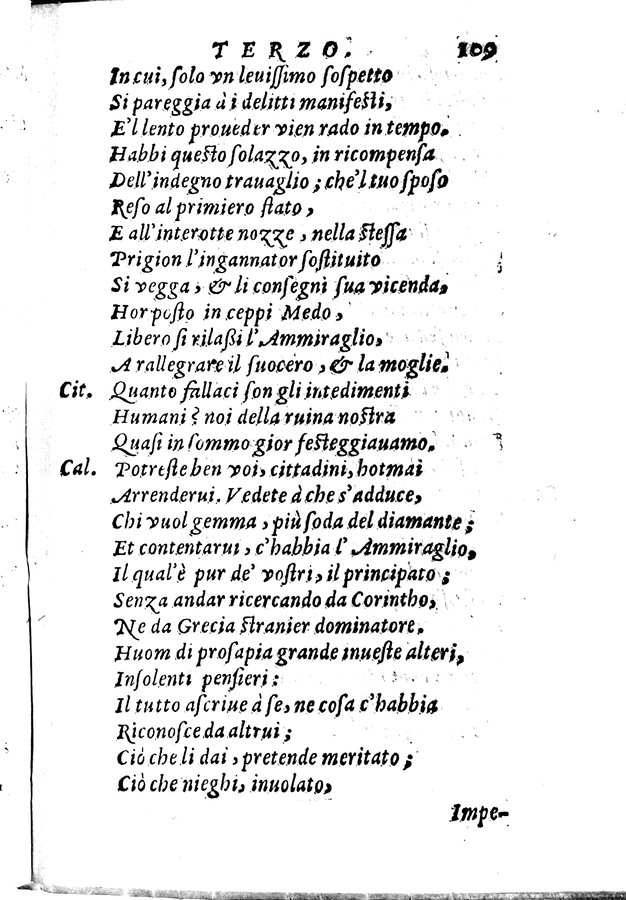 TERZO. 109
In cui, solo vn leuissimo sospetto
Si pareggia à i delitti manifesti,
E'l lento proueder vien rado in tempo.
Habbi questo solazzo, in ricompensa
Dell'indegno trauaglio; che'l tuo sposo
Reso al primiero stato,
E all'interotte nozze, nella stessa
Prigion l'ingannator sostituito
Si vegga, & li consegni sua vicenda,
Hor posto in ceppi Medo,
Libero si rilaßi l'Ammiraglio,
A rallegrare il suocero, & la moglie.
Cit. Quanto fallaci son gli intedimenti
Humani? noi della ruina nostra
Quasi in sommo gior festeggiauamo.
Cal. Potreste ben voi, cittadini, hotmai
Arrenderui. Vedete à che s'adduce,
Chi vuol gemma, più soda del diamante;
Et contentarui, c'habbia l'Ammiraglio,
Il qual'è pur de' vostri, il principato;
Senza andar ricercando da Corintho,
Ne da Grecia stranier dominatore.
Huom di prosapia grande inueste alteri,
Insolenti pensieri:
Il tutto ascriue à se, ne cosa c'habbia
Riconosce da altrui;
Ciò che li dai, pretende meritato;
Ciò che nieghi, inuolato,
Impe-